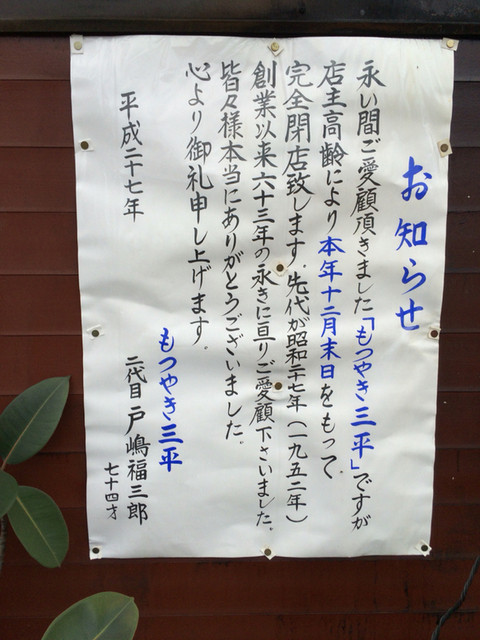 お知らせ
永い間ご愛顧頂きました「もつやき三平」ですが
店主高齢により本年十二月末日をもって
完全閉店致します。先代が昭和二十七年(一九五二年)
創業以来六十三年の永きに亘りご愛顧下さいました。
皆々様本当にありがとうございました。
心より御礼申し上げます。
平成二十七年
もつやき三平
二代目 戸嶋福三郎
七十四才